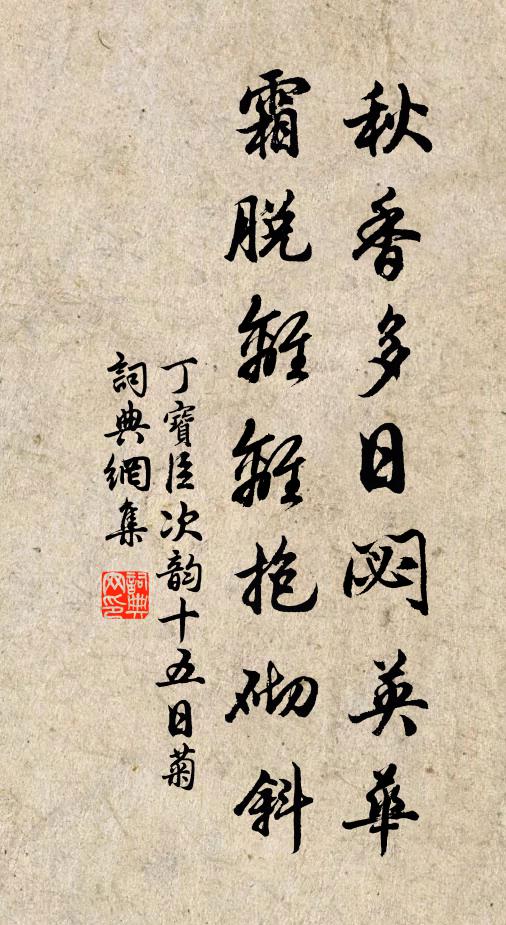 秋香多日閟英華
霜脱離離抱砌斜
丁寶臣次韵十五日菊
詞典網集
詞典網印